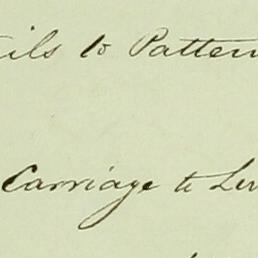 ils to Pattern
Carriage to